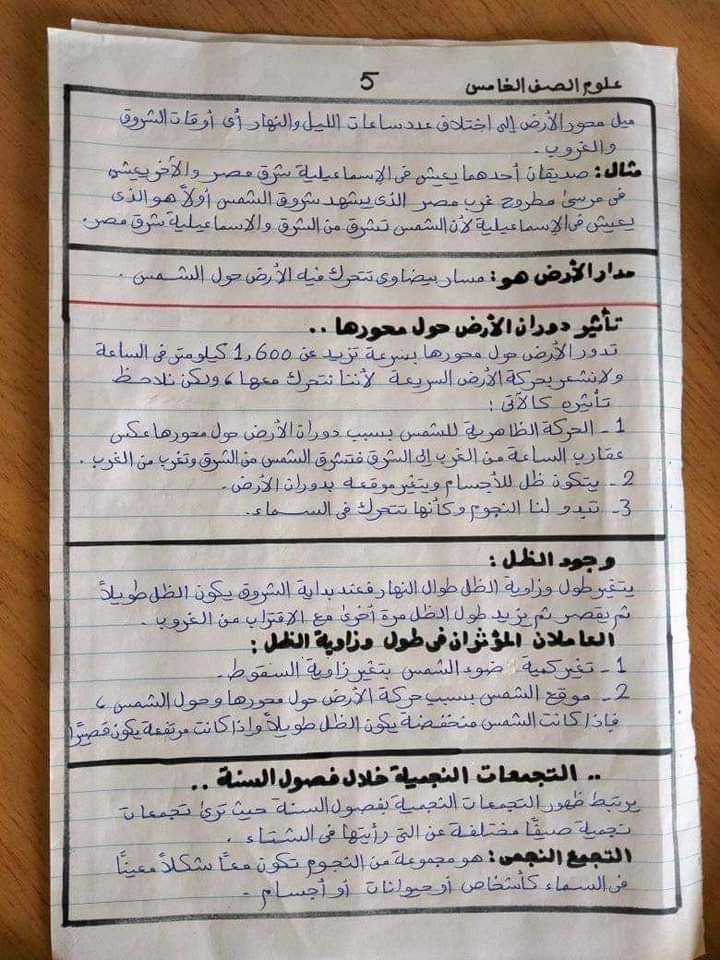 علوم الصف الخامس 5
ميل محور الأرض إلى اختلاف عدد ساعات الليل والنهار أى أوقات الشروق
والغروب.
مثال: صديقان أحدهما يعيش فى الإسماعيلية شرق مصر والآخر يعيش
فى مرسى مطروح غرب مصر الذى يشهد شروق الشمس أولاً هو الذى
يعيش فى الإسماعيلية لأن الشمس تشرق من الشرق والاسماعيلية شرق مصر.
مدار الأرض هو: مسار بيضاوى تتحرك فيه الأرض حول الشمس.
تأثير دوران الأرض حول محورها ..
تدور الأرض حول محورها بسرعة تزيد عن 1,600 كيلومتر فى الساعة
ولا نشعر بحركة الأرض السريعة لأننا نتحرك معها، ولكن نلاحظ
تأثيره كالآتى:
1- الحركة الظاهرية للشمس بسبب دوران الأرض حول محورها عكس
عقارب الساعة من الغرب إلى الشرق فتشرق الشمس من الشرق وتغرب من الغرب.
2- يتكون ظل للأجسام ويتغير موقعه بدوران الأرض.
3- تبدو لنا النجوم وكأنها تتحرك فى السماء.
وجود الظل:
يتغير طول وزاوية الظل طوال النهار فعند بداية الشروق يكون الظل طويلاً
ثم يقصر ثم يزيد طول الظل مرة أخرى مع الاقتراب من الغروب.
العاملان المؤثران فى طول وزاوية الظل:
1- تغير كمية ضوء الشمس بتغير زاوية السقوط.
2- موقع الشمس بسبب حركة الأرض حول محورها وحول الشمس،
فإذا كانت الشمس منخفضة يكون الظل طويلاً وإذا كانت مرتفعة يكون قصيرًا
.. التجمعات النجمية خلال فصول السنة ..
يرتبط ظهور التجمعات النجمية بفصول السنة حيث ترى تجمعات
نجمية صيفًا مختلفة عن التى رأيتها فى الشتاء.
التجمع النجمى: هو مجموعة من النجوم تكون معًا شكلاً معينًا
فى السماء كأشخاص أو حيوانات أو أجسام.